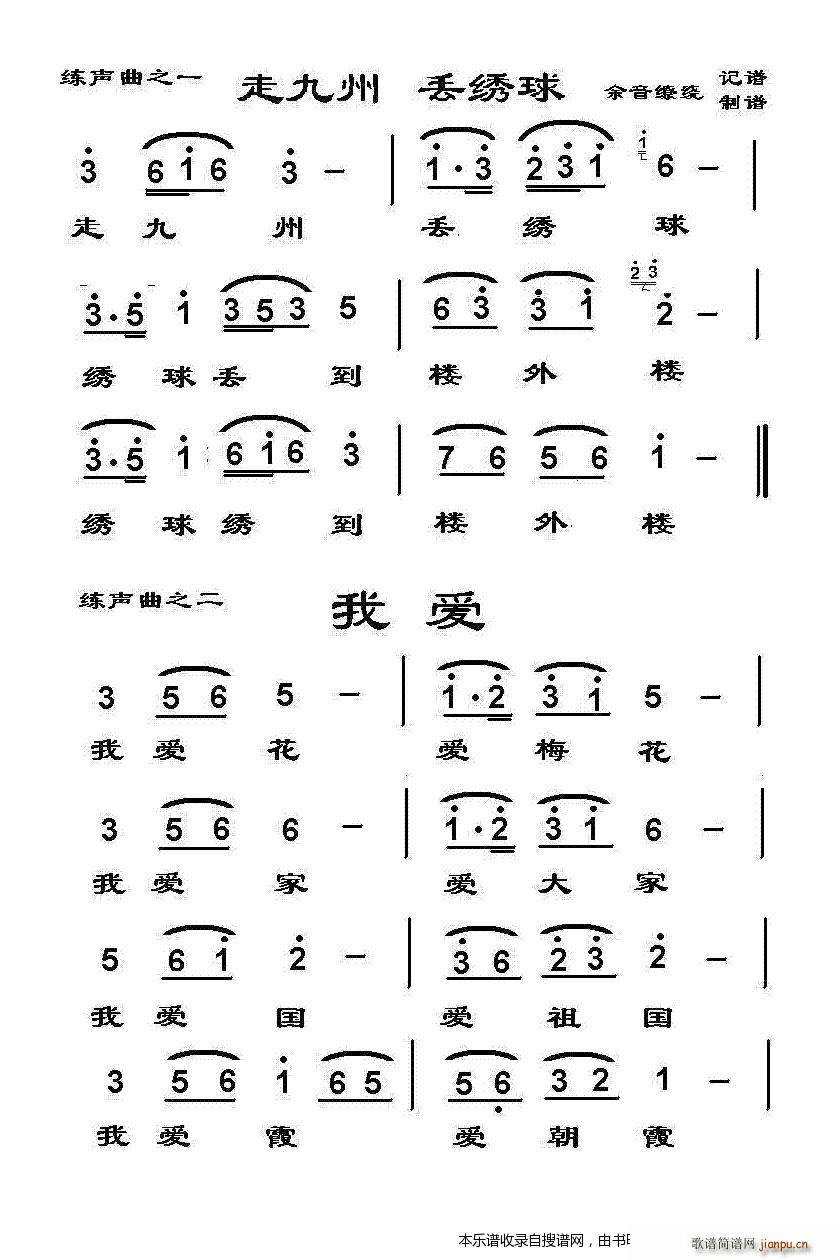 练声曲之一 走九州 丢绣球 余音缭绕 记谱 制谱
3 6 1 6 3 – | 1 · 3 2 3 1 1 6 – |
走 九 州 丢 绣 球
3 · 5 1 3 5 3 5 | 6 3 3 1 2 3 2 – |
绣 球 丢 到 楼 外 楼
3 · 5 1 6 1 6 3 | 7 6 5 6 1 – ‖
绣 球 绣 到 楼 外 楼
练声曲之二 我 爱
3 5 6 5 – | 1 · 2 3 1 5 – |
我 爱 花 爱 梅 花
3 5 6 6 – | 1 · 2 3 1 6 – |
我 爱 家 爱 大 家
5 6 1 2 – | 3 6 2 3 2 – |
我 爱 国 爱 祖 国
3 5 6 1 6 5 | 5 6 3 2 1 – |
我 爱 霞 爱 朝 霞
本乐谱收录自搜谱网，由书
歌谱简谱网
jianpu.cn